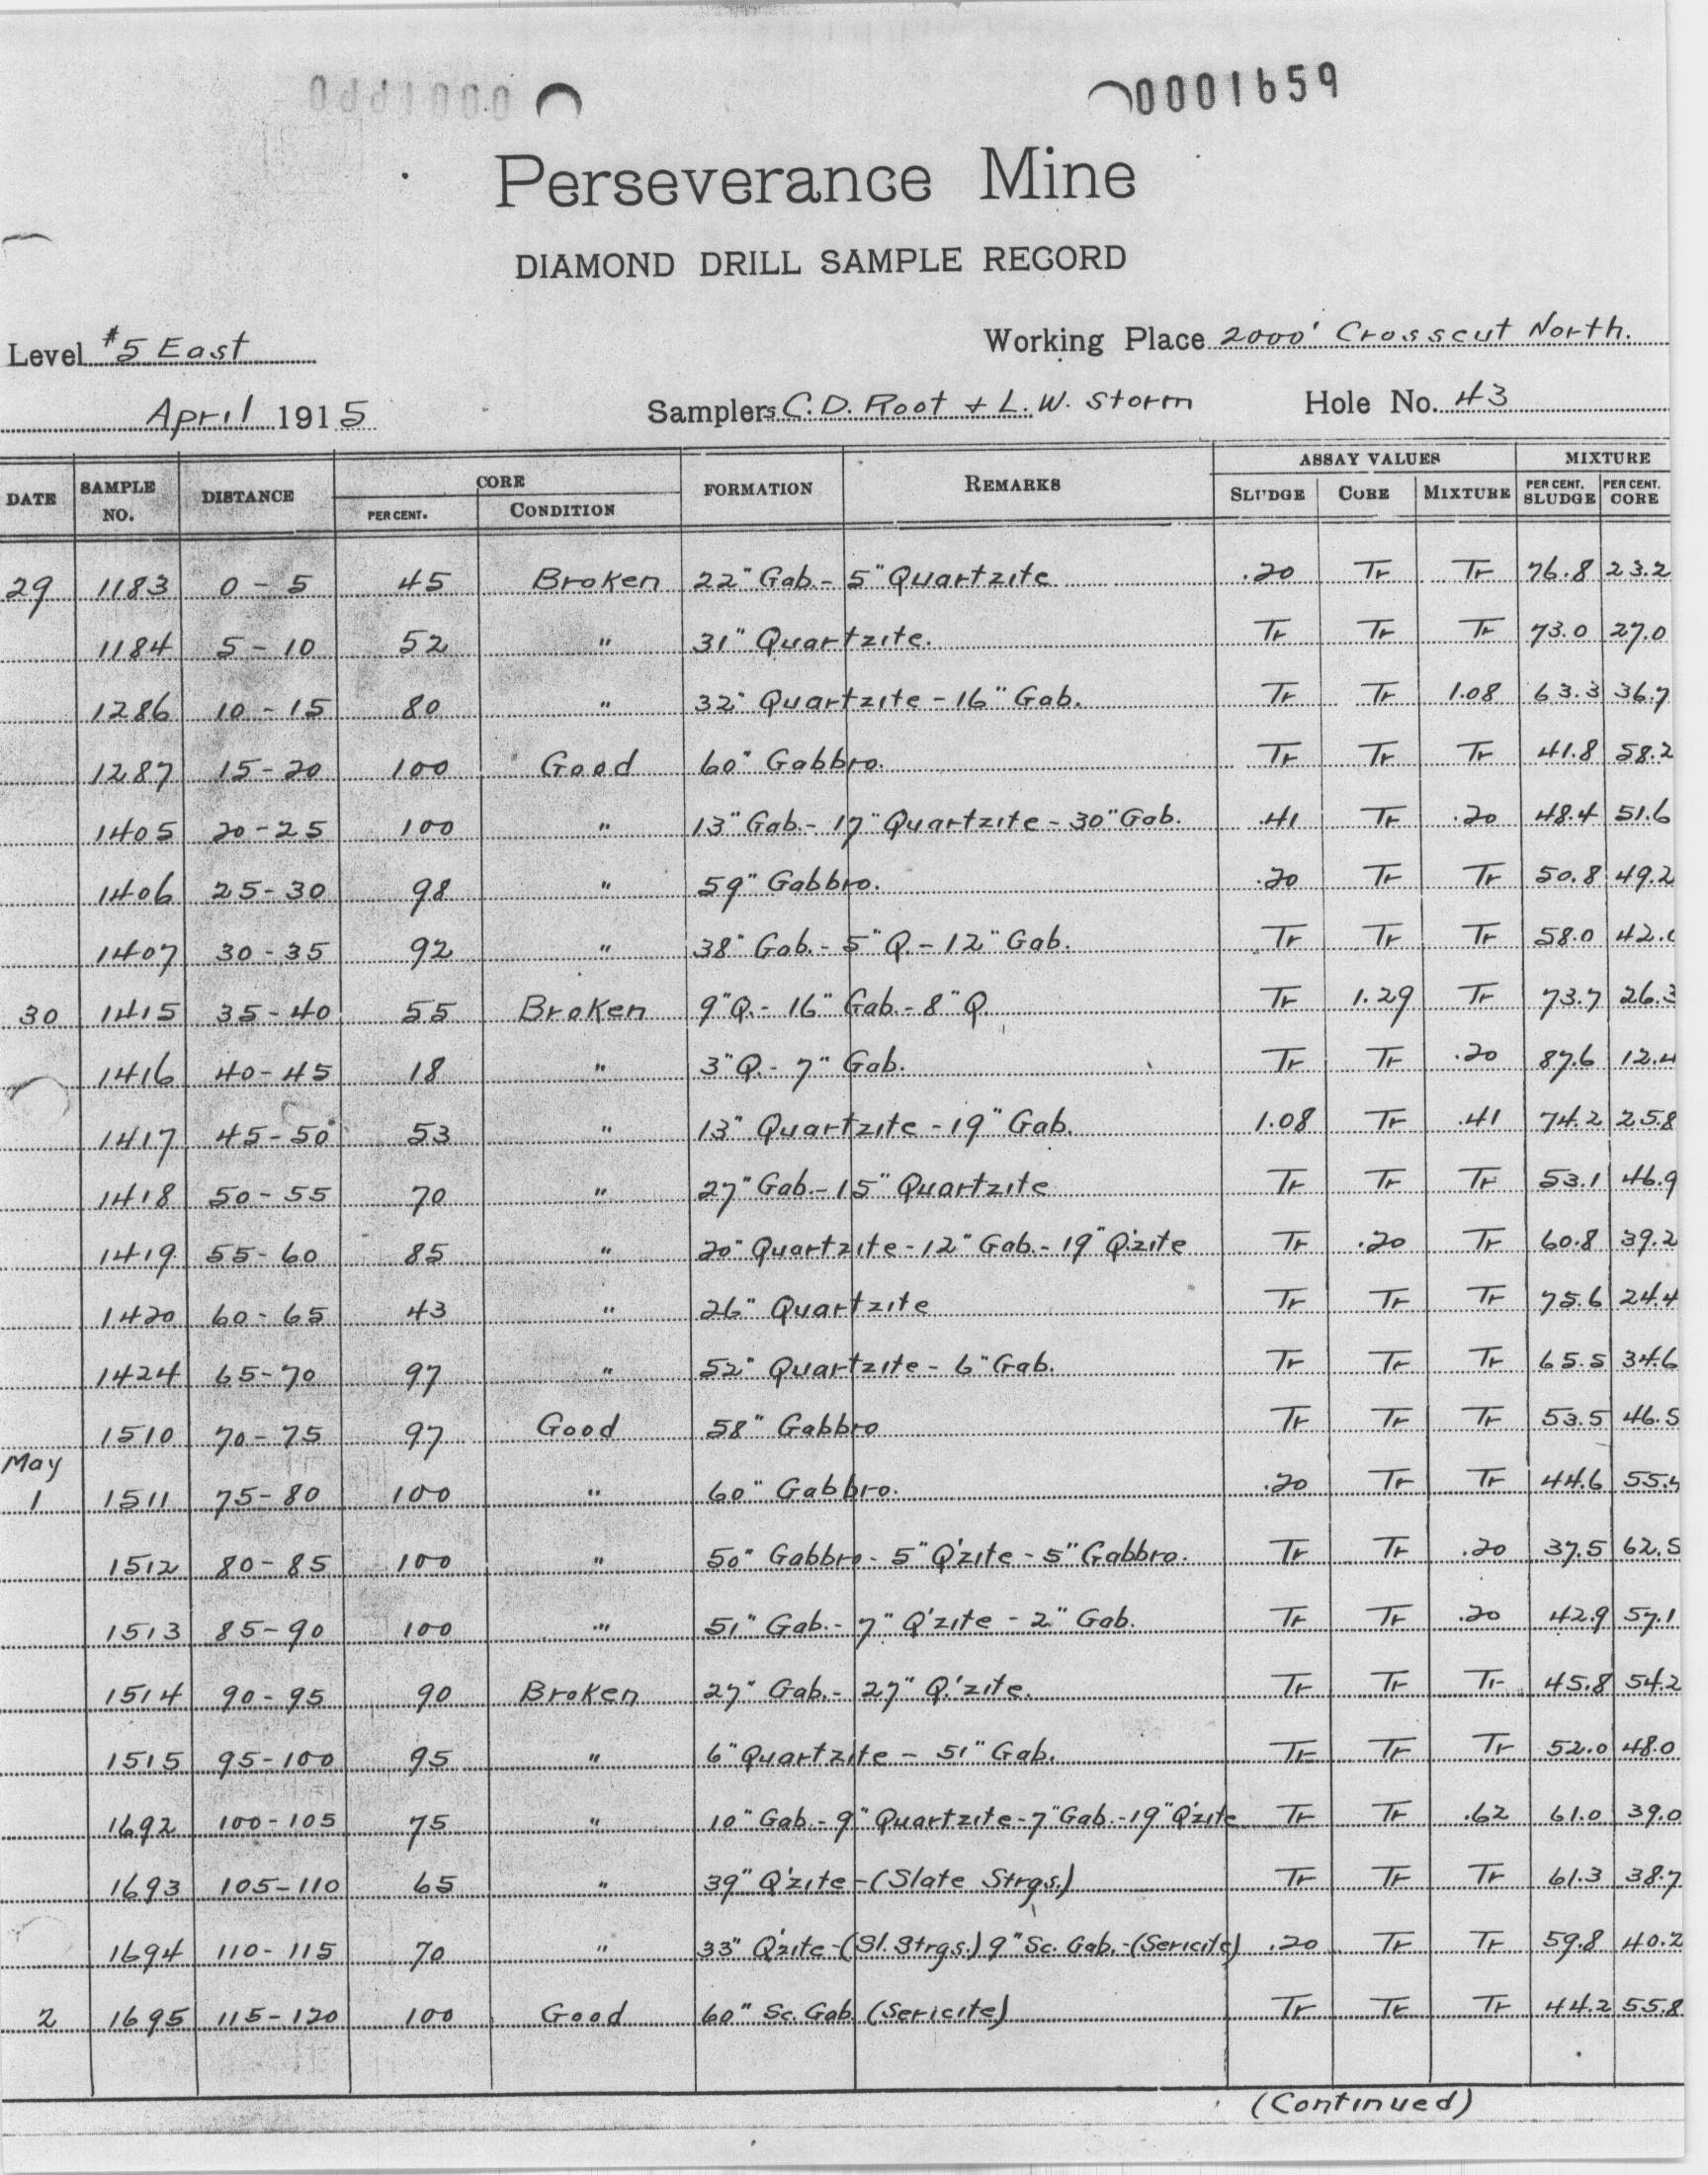 0001659
Perseverance Mine
DIAMOND DRILL SAMPLE RECORD
Level #5 East Working Place 2000' Crosscut North.
April 1915 Samplers C.D. Root + L.W. Storm Hole No. 43
DATE SAMPLE NO. DISTANCE CORE PER CENT. CONDITION FORMATION REMARKS ASSAY VALUES SLUDGE CORE MIXTURE MIXTURE PER CENT. SLUDGE PER CENT. CORE
29 1183 0-5 45 Broken 22" Gab. - 5" Quartzite .20 Tr Tr 76.8 23.2
1184 5-10 52 " 31" Quartzite. Tr Tr Tr 73.0 27.0
1286 10-15 80 " 32" Quartzite - 16" Gab. Tr Tr 1.08 63.3 36.7
1287 15-20 100 Good 60" Gabbro. Tr Tr Tr 41.8 58.2
1405 20-25 100 " 13" Gab. - 17" Quartzite - 30" Gab. .41 Tr .20 48.4 51.6
1406 25-30 98 " 59" Gabbro. .20 Tr Tr 50.8 49.2
1407 30-35 92 " 38" Gab. - 5" Q. - 12" Gab. Tr Tr Tr 58.0 42.0
30 1415 35-40 55 Broken 9" Q. - 16" Gab. - 8" Q. Tr 1.29 Tr 73.7 26.3
1416 40-45 18 " 3" Q. - 7" Gab. Tr Tr .20 87.6 12.4
1417 45-50 53 " 13" Quartzite - 19" Gab. 1.08 Tr .41 74.2 25.8
1418 50-55 70 " 27" Gab. - 15" Quartzite Tr Tr Tr 53.1 46.9
1419 55-60 85 " 20" Quartzite - 12" Gab. - 19" Q'zite Tr .20 Tr 60.8 39.2
1420 60-65 43 " 26" Quartzite Tr Tr Tr 75.6 24.4
1424 65-70 97 " 52" Quartzite - 6" Gab. Tr Tr Tr 65.5 34.6
1510 70-75 97 Good 58" Gabbro Tr Tr Tr 53.5 46.5
May
1 1511 75-80 100 " 60" Gabbro. .20 Tr Tr 44.6 55.4
1512 80-85 100 " 50" Gabbro - 5" Q'zite - 5" Gabbro. Tr Tr .20 37.5 62.5
1513 85-90 100 " 51" Gab. - 7" Q'zite - 2" Gab. Tr Tr .20 42.9 57.1
1514 90-95 90 Broken 27" Gab. - 27" Q.'zite. Tr Tr Tr 45.8 54.2
1515 95-100 95 " 6" Quartzite - 51" Gab. Tr Tr Tr 52.0 48.0
1692 100-105 75 " 10" Gab. - 9" Quartzite - 7" Gab. - 19" Q'zite Tr Tr .62 61.0 39.0
1693 105-110 65 " 39" Q'zite - (Slate Strgs.) Tr Tr Tr 61.3 38.7
1694 110-115 70 " 33" Q'zite - (Sl. Strgs.) 9" Sc. Gab. - (Sericite) .20 Tr Tr 59.8 40.2
2 1695 115-120 100 Good 60" Sc. Gab (Sericite) Tr Tr Tr 44.2 55.8
(Continued)